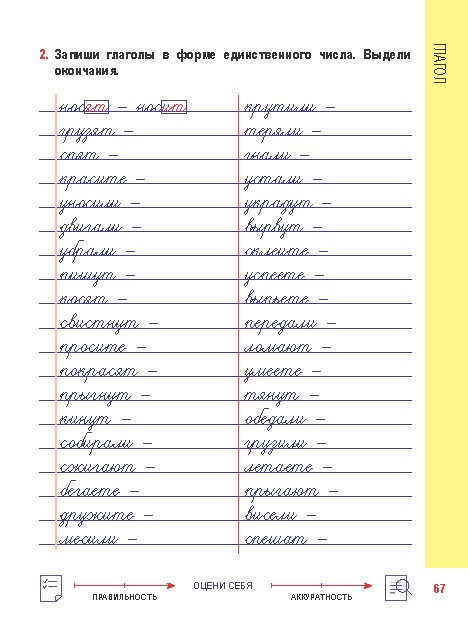 2. Запиши глаголы в форме единственного числа. Выдели
окончания.
ГЛАГОЛ
носят – носит
грузят –
спят –
красите –
уносили –
двигали –
убрали –
пишут –
косят –
свистнут –
просите –
покрасят –
прыгнут –
кинут –
собирали –
сжигают –
бегаете –
дружите –
месили –
крутили –
теряли –
гнали –
устали –
украдут –
вырвут –
склеите –
успеете –
выпьете –
передали –
ломают –
умеете –
тянут –
обедали –
грузили –
летаете –
прыгают –
висели –
спешат –
ОЦЕНИ СЕБЯ
ПРАВИЛЬНОСТЬ
АККУРАТНОСТЬ
67